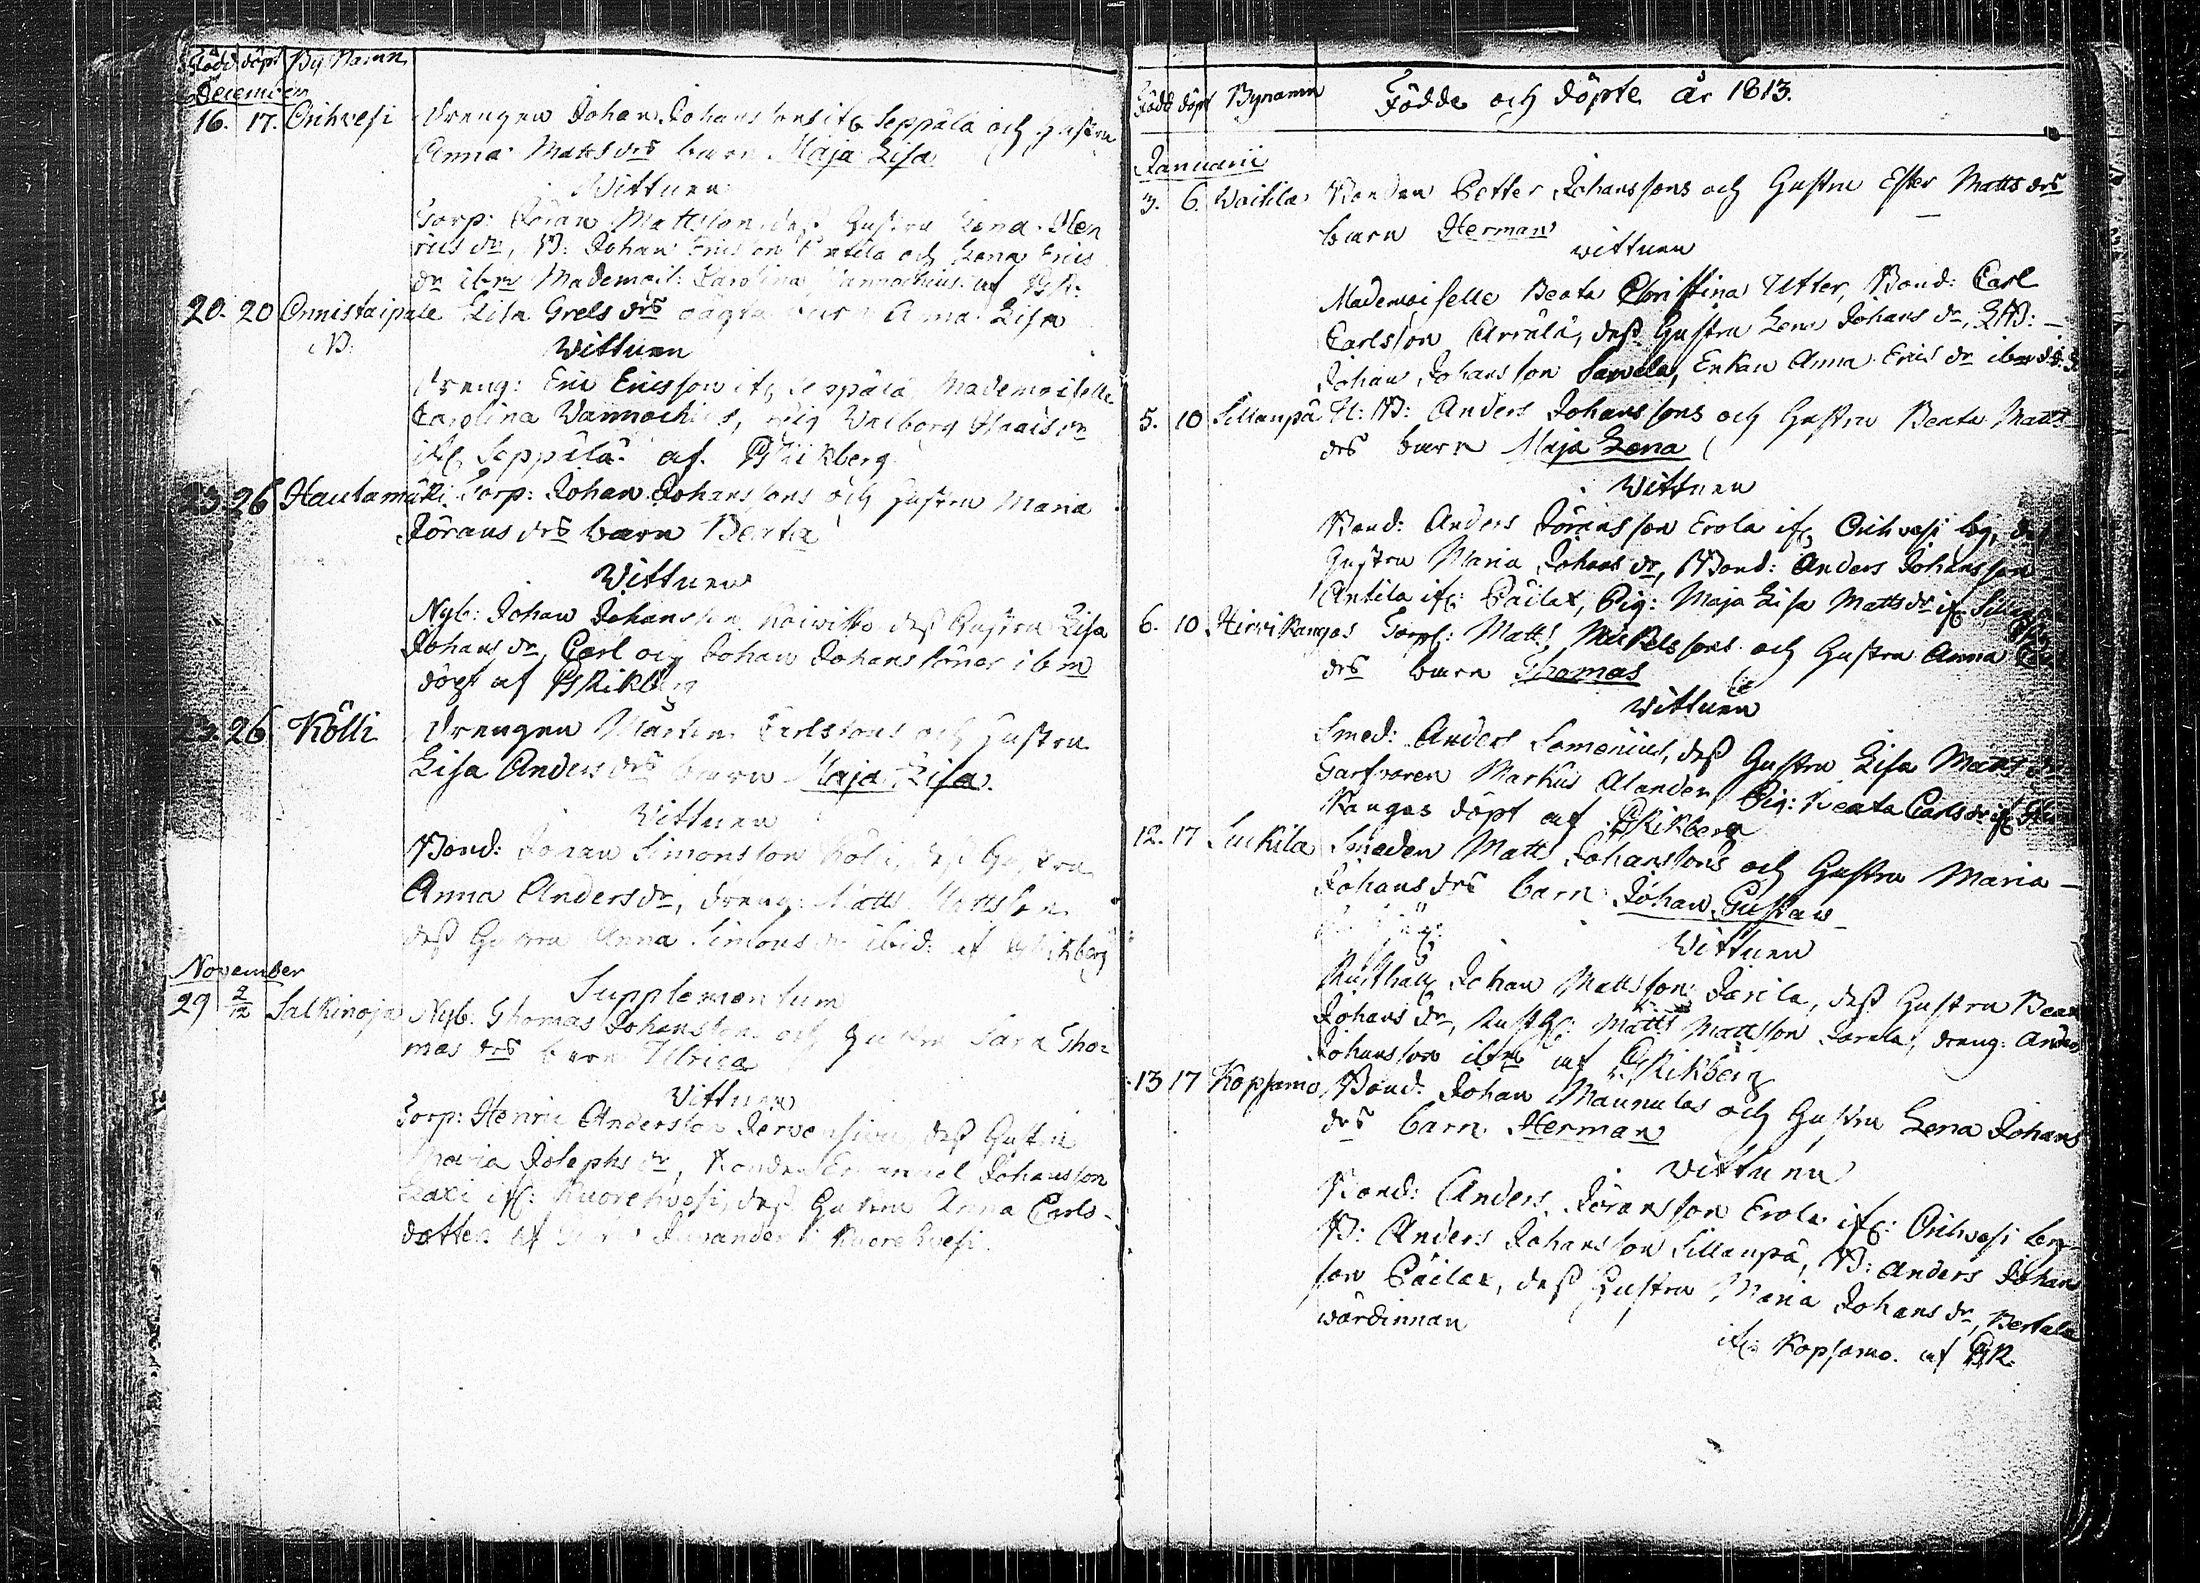 Född döpt By Namn
December
16. 17. Orihvesi Drengen Johan Johanssons ifr. Seppälä och Hustru
Anna Matts drs barn Maja Lisa
Wittnen
Torp: Jöran Mattsson dess Hustru Lena Hen
rics dr, B: Johan Ericsson Antila och Lena Erics
dr ibm Mademoil: Carolina Wannochius af BR:
20. 20 Onnistaipale Lisa Grels drs oägta barn Anna Lisa
N.
Wittnen
Dreng: Eric Ericsson ifr. Seppälä, Mademoiselle
Carolina Wannochius, pig Walborg Isaacs dr
ifr. Seppälä. af. Rikberg
23. 26 Hautamäki Torp: Johan Johanssons och Hustru Maria
Jörans drs barn Beata
Wittnen
Nyb: Johan Johansson Koiwisto dess Hustru Lisa
Johans dr, Carl och Johan Johanssöner ibm
döpt af Rikberg
26 Kölli Drengen Martin Carlssons och Hustru
Lisa Anders drs barn Maja Lisa.
Wittnen
Bond: Johan Simonsson Kölli, dess Hustru
Anna Anders dr, dreng: Matts Mattsson
dess Hustru Anna Simons dr ibid: af Rikberg
November
Supplementum
29 2/12 Salkinoja Nyb. Thomas Johansson och Hustru Sara Tho=
mas drs barn Ulrica
Wittnen
Torp: Henric Andersson Järvensivu dess Hustru
Maria Josephs dr, Bonden Emanuel Johansson
ifr: Kuorehvesi, dess Hustru Anna Carls-
dotter af Kuorehvesi.
Född döpt Bynamn Födde och döpte år 1813.
Januarii
3. 6. Woitila Bonden Petter Johanssons och Hustru Ester Matts drs
barn Herman
wittnen
Mademoiselle Beata Christina Utter, Bond: Carl
Carlsson Arrälä, dess Hustru Lena Johans dr,
Johan Johansson Sawela, Enkan Anna Erics dr ibm
5. 10 Sillanpä B: Anders Johanssons och Hustru Beata Matts
drs barn Maja Lena
Wittnen
Bond: Anders Jöransson Erola ifr. Orihvesi by, dess
Hustru Maria Johans dr, Bond: Anders Johansson
Antila ifr: Päilax, Pig: Maja Lisa Matts dr ifr
6. 10 Hirwikangas Torp: Matts Mickelssons och Hustru Anna
drs barn Thomas
Wittnen
Smed: Anders Somenius, dess Hustru Lisa Matts dr
Garfvaren Markus Alander, Pig: Beata Carls dr ifr
Kangas döpt af Rikberg
12. 17 Suckila Smeden Matts Johanssons och Hustru Maria
Johans drs barn Johan Gustaw
Wittnen
Rusthåll: Johan Mattsson Jarila, dess Hustru Beata
Johans dr, Rusth: Matts Mattsson Jarila, dreng: Anders
Johansson ibm af Rikberg
13 17 Kopsamo Bond: Johan Maunulas och Hustru Lena Johans
drs barn Herman
Wittnen
Bond: Anders Jöransson Erola ifr: Orihvesi by
B: Anders Johansson Sillanpä, B: Anders Johan
son Päilax, dess Hustru Maria Johans dr, Bertala
wärdinnan
ifr: Kopsamo. af BR.